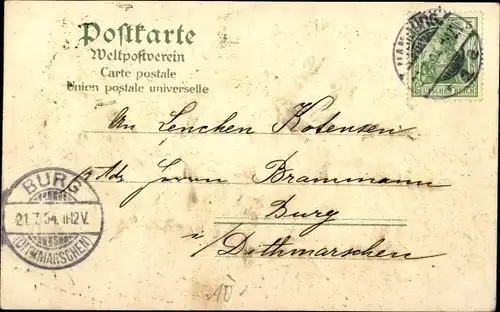 Postkarte
Weltpostverein
Carte postale
Union postale universelle
5
DEUTSCHES REICH
An Lenchen Kotensen
p. Adr. Herrn Brammann
Burg
i/ Dithmarschen
BURG
21.7.04. 11-12V.
(DITHMARSCHEN)
10